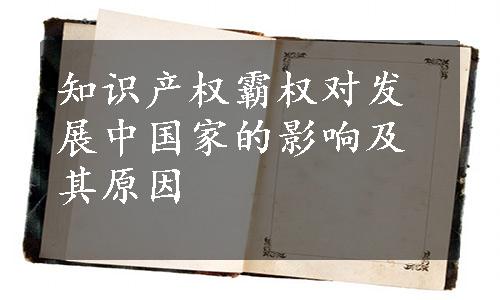 知识产权霸权对发
展中国家的影响及
其原因